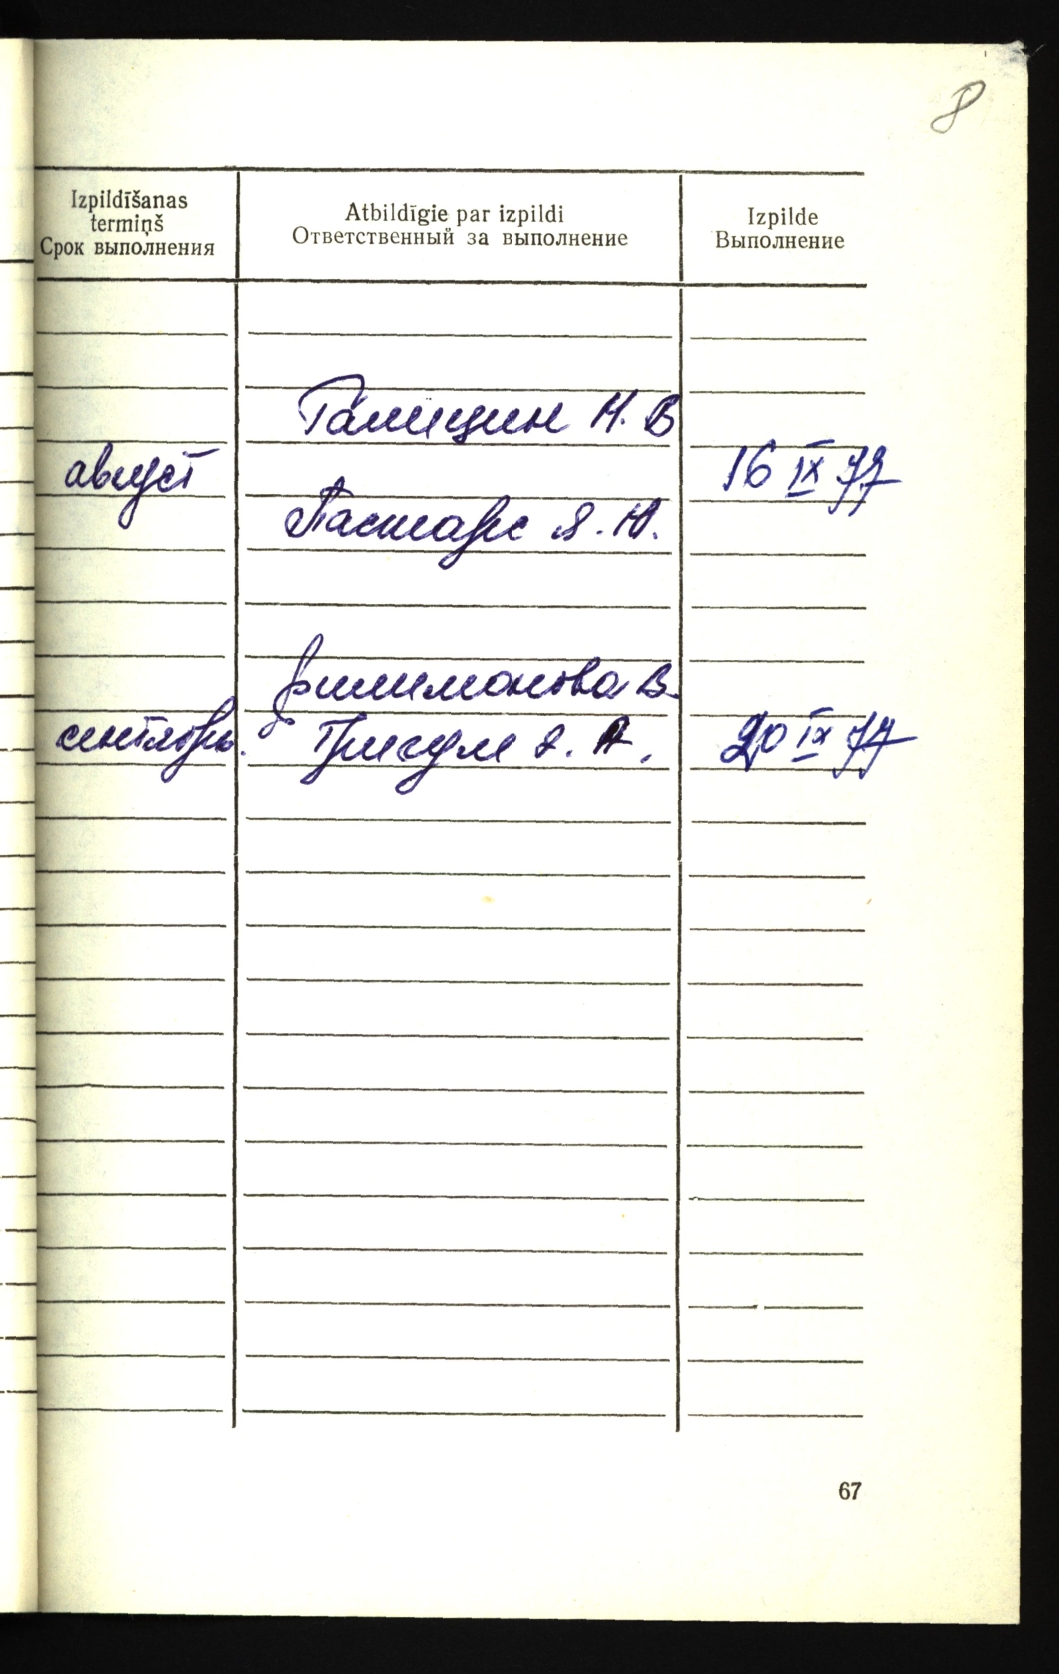 8
Izpildīšanas
termiņš
Срок выполнения
Atbildīgie par izpildi
Ответственный за выполнение
Izpilde
Выполнение
Галицин Н. В
август
16 IX 77
Пастарс Я. Ю.
Филимонова В.
сентябрь.
Григул А.
20 IX 77
67